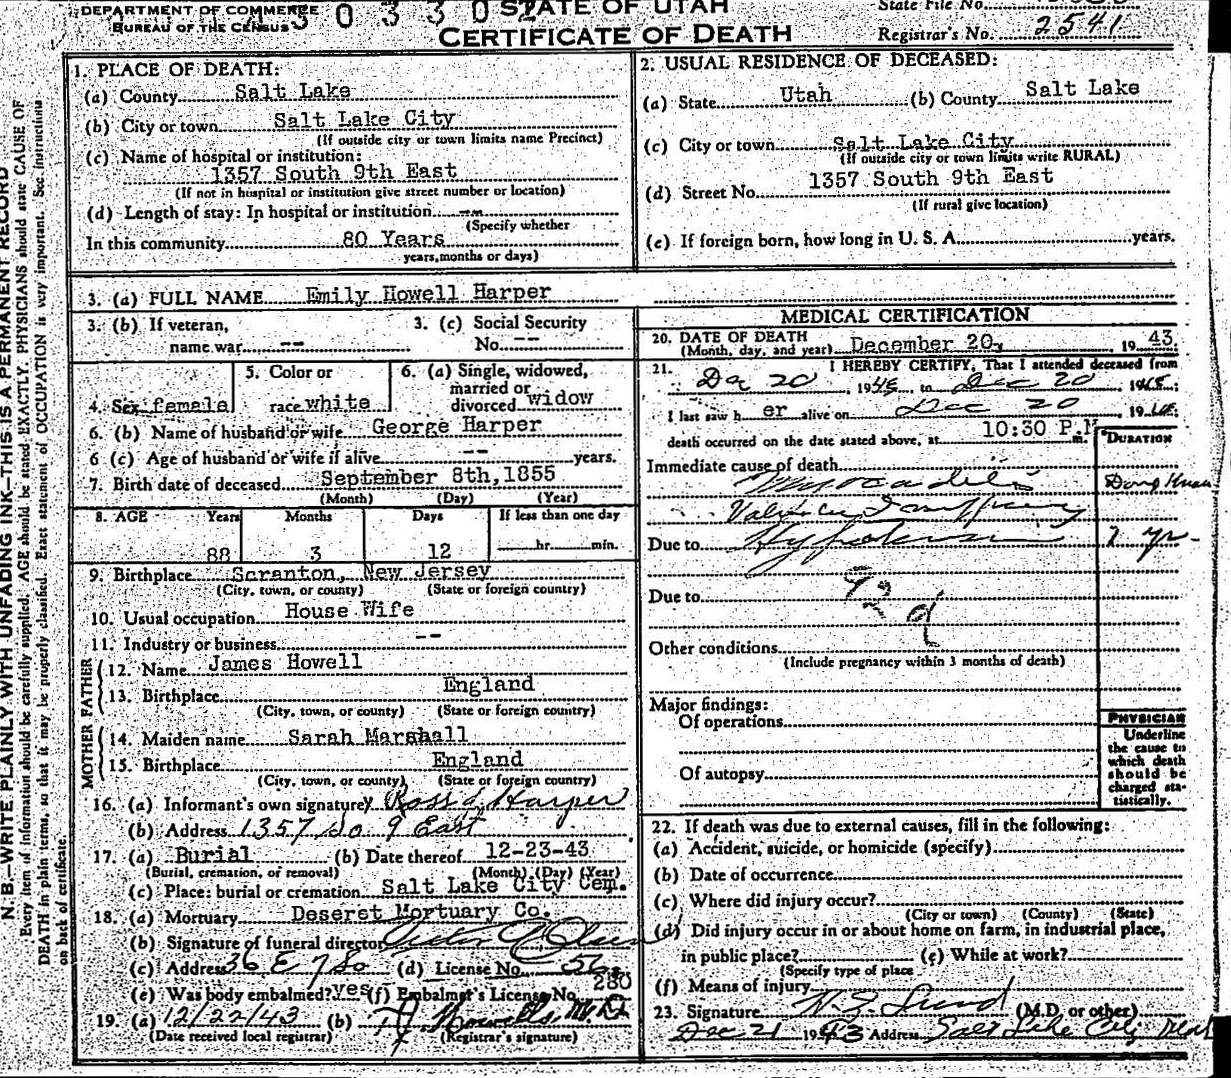 DEPARTMENT OF COMMERCE
BUREAU OF THE CENSUS
3 0 3 3 0 2
STATE OF UTAH
CERTIFICATE OF DEATH
State File No.
Registrar's No. 2541
N. B.—WRITE PLAINLY WITH UNFADING INK—THIS IS A PERMANENT RECORD
Every item of information should be carefully supplied. AGE should be stated EXACTLY. PHYSICIANS should state CAUSE OF
DEATH in plain terms, so that it may be properly classified. Exact statement of OCCUPATION is very important. See instructions
on back of certificate.
1. PLACE OF DEATH:
(a) County Salt Lake
(b) City or town Salt Lake City
(If outside city or town limits name Precinct)
(c) Name of hospital or institution:
1357 South 9th East
(If not in hospital or institution give street number or location)
(d) Length of stay: In hospital or institution --
(Specify whether
In this community 80 Years
years, months or days)
2. USUAL RESIDENCE OF DECEASED:
(a) State Utah (b) County Salt Lake
(c) City or town Salt Lake City
(If outside city or town limits write RURAL)
(d) Street No. 1357 South 9th East
(If rural give location)
(e) If foreign born, how long in U. S. A. years.
3. (a) FULL NAME Emily Howell Harper
3. (b) If veteran,
name war --
3. (c) Social Security
No. --
4. Sex female
5. Color or
race white
6. (a) Single, widowed,
married or
divorced widow
6. (b) Name of husband or wife George Harper
6 (c) Age of husband or wife if alive -- years.
7. Birth date of deceased September 8th, 1855
(Month) (Day) (Year)
8. AGE Years Months Days If less than one day
88 3 12 hr. min.
9. Birthplace Scranton, New Jersey
(City, town, or county) (State or foreign country)
10. Usual occupation House Wife
11. Industry or business --
FATHER
12. Name James Howell
13. Birthplace England
(City, town, or county) (State or foreign country)
MOTHER
14. Maiden name Sarah Marshall
15. Birthplace England
(City, town, or county) (State or foreign country)
16. (a) Informant's own signature Harper
(b) Address 1357 So 9 East
17. (a) Burial (b) Date thereof 12-23-43
(Burial, cremation, or removal) (Month) (Day) (Year)
(c) Place: burial or cremation Salt Lake City Cem.
18. (a) Mortuary Deseret Mortuary Co.
(b) Signature of funeral director
(c) Address 36 E 7 So (d) License No.
280
(e) Was body embalmed? yes (f) Embalmer's License No.
19. (a) 12/22/43 (b) M.D.
(Date received local registrar) (Registrar's signature)
MEDICAL CERTIFICATION
20. DATE OF DEATH
(Month, day, and year) December 20, 19 43.
21. I HEREBY CERTIFY, That I attended deceased from
Dec 20 19 to Dec 20 19
I last saw h er alive on Dec 20 19
death occurred on the date stated above, at 10:30 P.M m.
DURATION
Immediate cause of death
Due to
yr-
Due to
92 d
Other conditions
(Include pregnancy within 3 months of death)
Major findings:
Of operations
Of autopsy
PHYSICIAN
Underline
the cause to
which death
should be
charged sta-
tistically.
22. If death was due to external causes, fill in the following:
(a) Accident, suicide, or homicide (specify)
(b) Date of occurrence
(c) Where did injury occur?
(City or town) (County) (State)
(d) Did injury occur in or about home on farm, in industrial place,
in public place? (e) While at work?
(Specify type of place
(f) Means of injury
23. Signature (M.D. or other)
Dec 21 1943 Address Salt Lake City